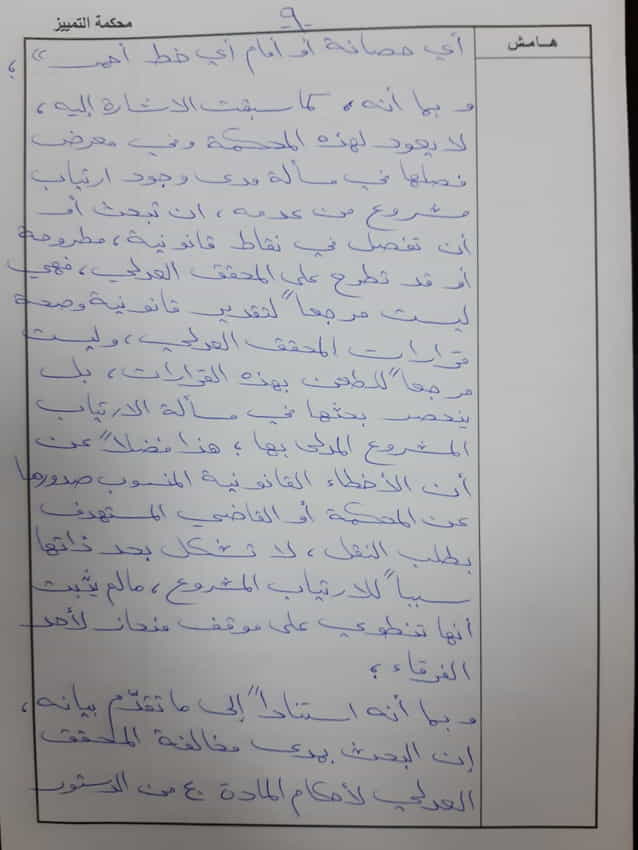 محكمة التمييز
-٩-
هـامـش
أي حصانة أو أمام أي خط أحمر» ؛
و بما أنه، كما سبقت الاشارة إليه،
لا يعود لهذه المحكمة وفي معرض
فصلها في مسألة مدى وجود ارتياب
مشروع من عدمه، ان تبحث أو
أن تفصل في نقاط قانونية، مطروحة
أو قد تطرح على المحقق العدلي، فهي
ليست مرجعاً لتقدير قانونية وصحة
قرارات المحقق العدلي، وليست
مرجعاً للطعن بهذه القرارات، بل
ينحصر بحثها في مسألة الارتياب
المشروع المدلى بها؛ هذا فضلاً عن
أن الأخطاء القانونية المنسوب صدورها
عن المحكمة أو القاضي المستهدف
بطلب النقل، لا تشكل بحد ذاتها
سبباً للارتياب المشروع، مالم يثبت
أنها تنطوي على موقف منحاز لأحد
الفرقاء؛
و بما أنه استناداً إلى ما تقدّم بيانه،
إن البحث بمدى مخالفة المحقق
العدلي لأحكام المادة ٤٠ من الدستور